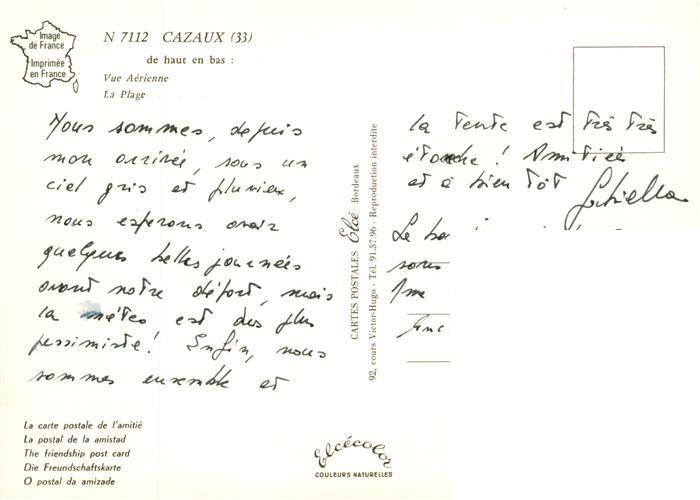 Image
de France
Imprimée
en France
N 7112 CAZAUX (33)
de haut en bas :
Vue Aérienne
La Plage
Nous sommes, depuis
mon arrivée, sous un
ciel gris et pluvieux,
nous esperons avoir
quelques belles journées
avant notre départ, mais
la météo est des plus
pessimiste! Enfin, nous
sommes ensemble et
la tente est très très
étanche! Amitiés
et à bientôt
CARTES POSTALES Elcé Bordeaux
92, cours Victor-Hugo - Tél. 91.57.96 - Reproduction interdite
La carte postale de l'amitié
La postal de la amistad
The friendship post card
Die Freundschaftskarte
O postal da amizade
Elcécolor
COULEURS NATURELLES